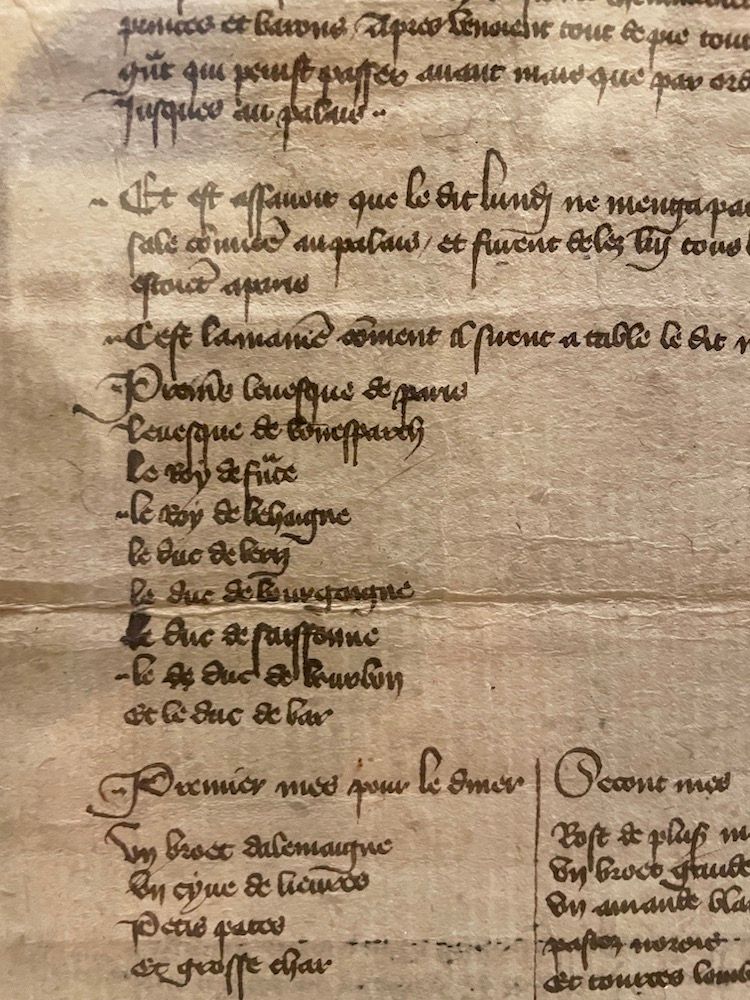 princes et barons / Apres venoient tout de pie tout
gñt qui peust passer auant mais que par ord
Jusques au palais
Et est assauoir que le dit lundj ne menga pas
sale au palais / et furent delez luy tous l
estoiēt a paris
Cest la maniē cōment il furent a table le dit
Premiēs leuesque de paris
leuesque de
le Roy de frāce
le Roy de behaigne
le duc de berrj
le duc de bourgoigne
le duc de saissonne
le duc de bourbon
Et le duc de bar
Premier mes pour le diner
Vn broet dalemaigne
vn cyue de lieures
Petis pates
Et grosse char
Secont mes
Rost de plus
Vn broet
vn amande bla
pastez norois
Et tourtes lomb